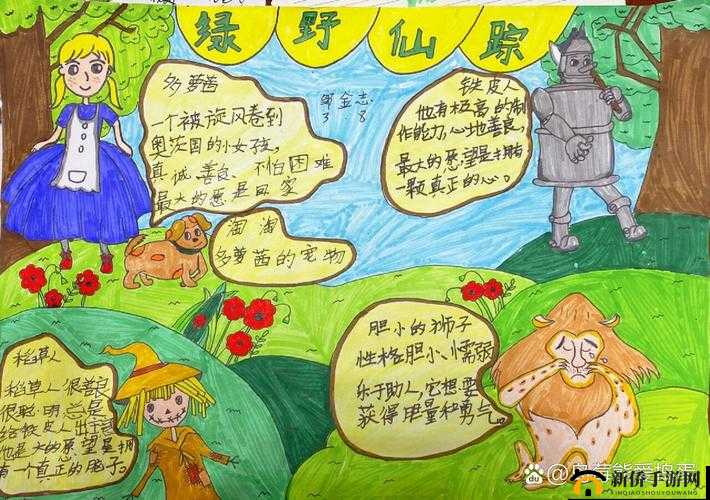 绿野仙踪
多萝茜
一个被旋风卷到
奥茨国的小女孩，
真诚、善良、不怕困难
最大的愿是回家
邹金志
3 8
铁皮人
他有极高的制
作能力，心地善良，
最大的愿望是拥有
一颗真正的心。
淘淘
多萝茜的宠物
胆小的狮子
性格胆小、懦弱
乐于助人，它想要
获得胆量和勇气。
稻草人
稻草人很善良
很聪明总是
给铁皮人出
他最大的愿望是拥
有一个真正的脑子。
Bai du
新侨手游网
XINQIAOSHOUYOUWANG